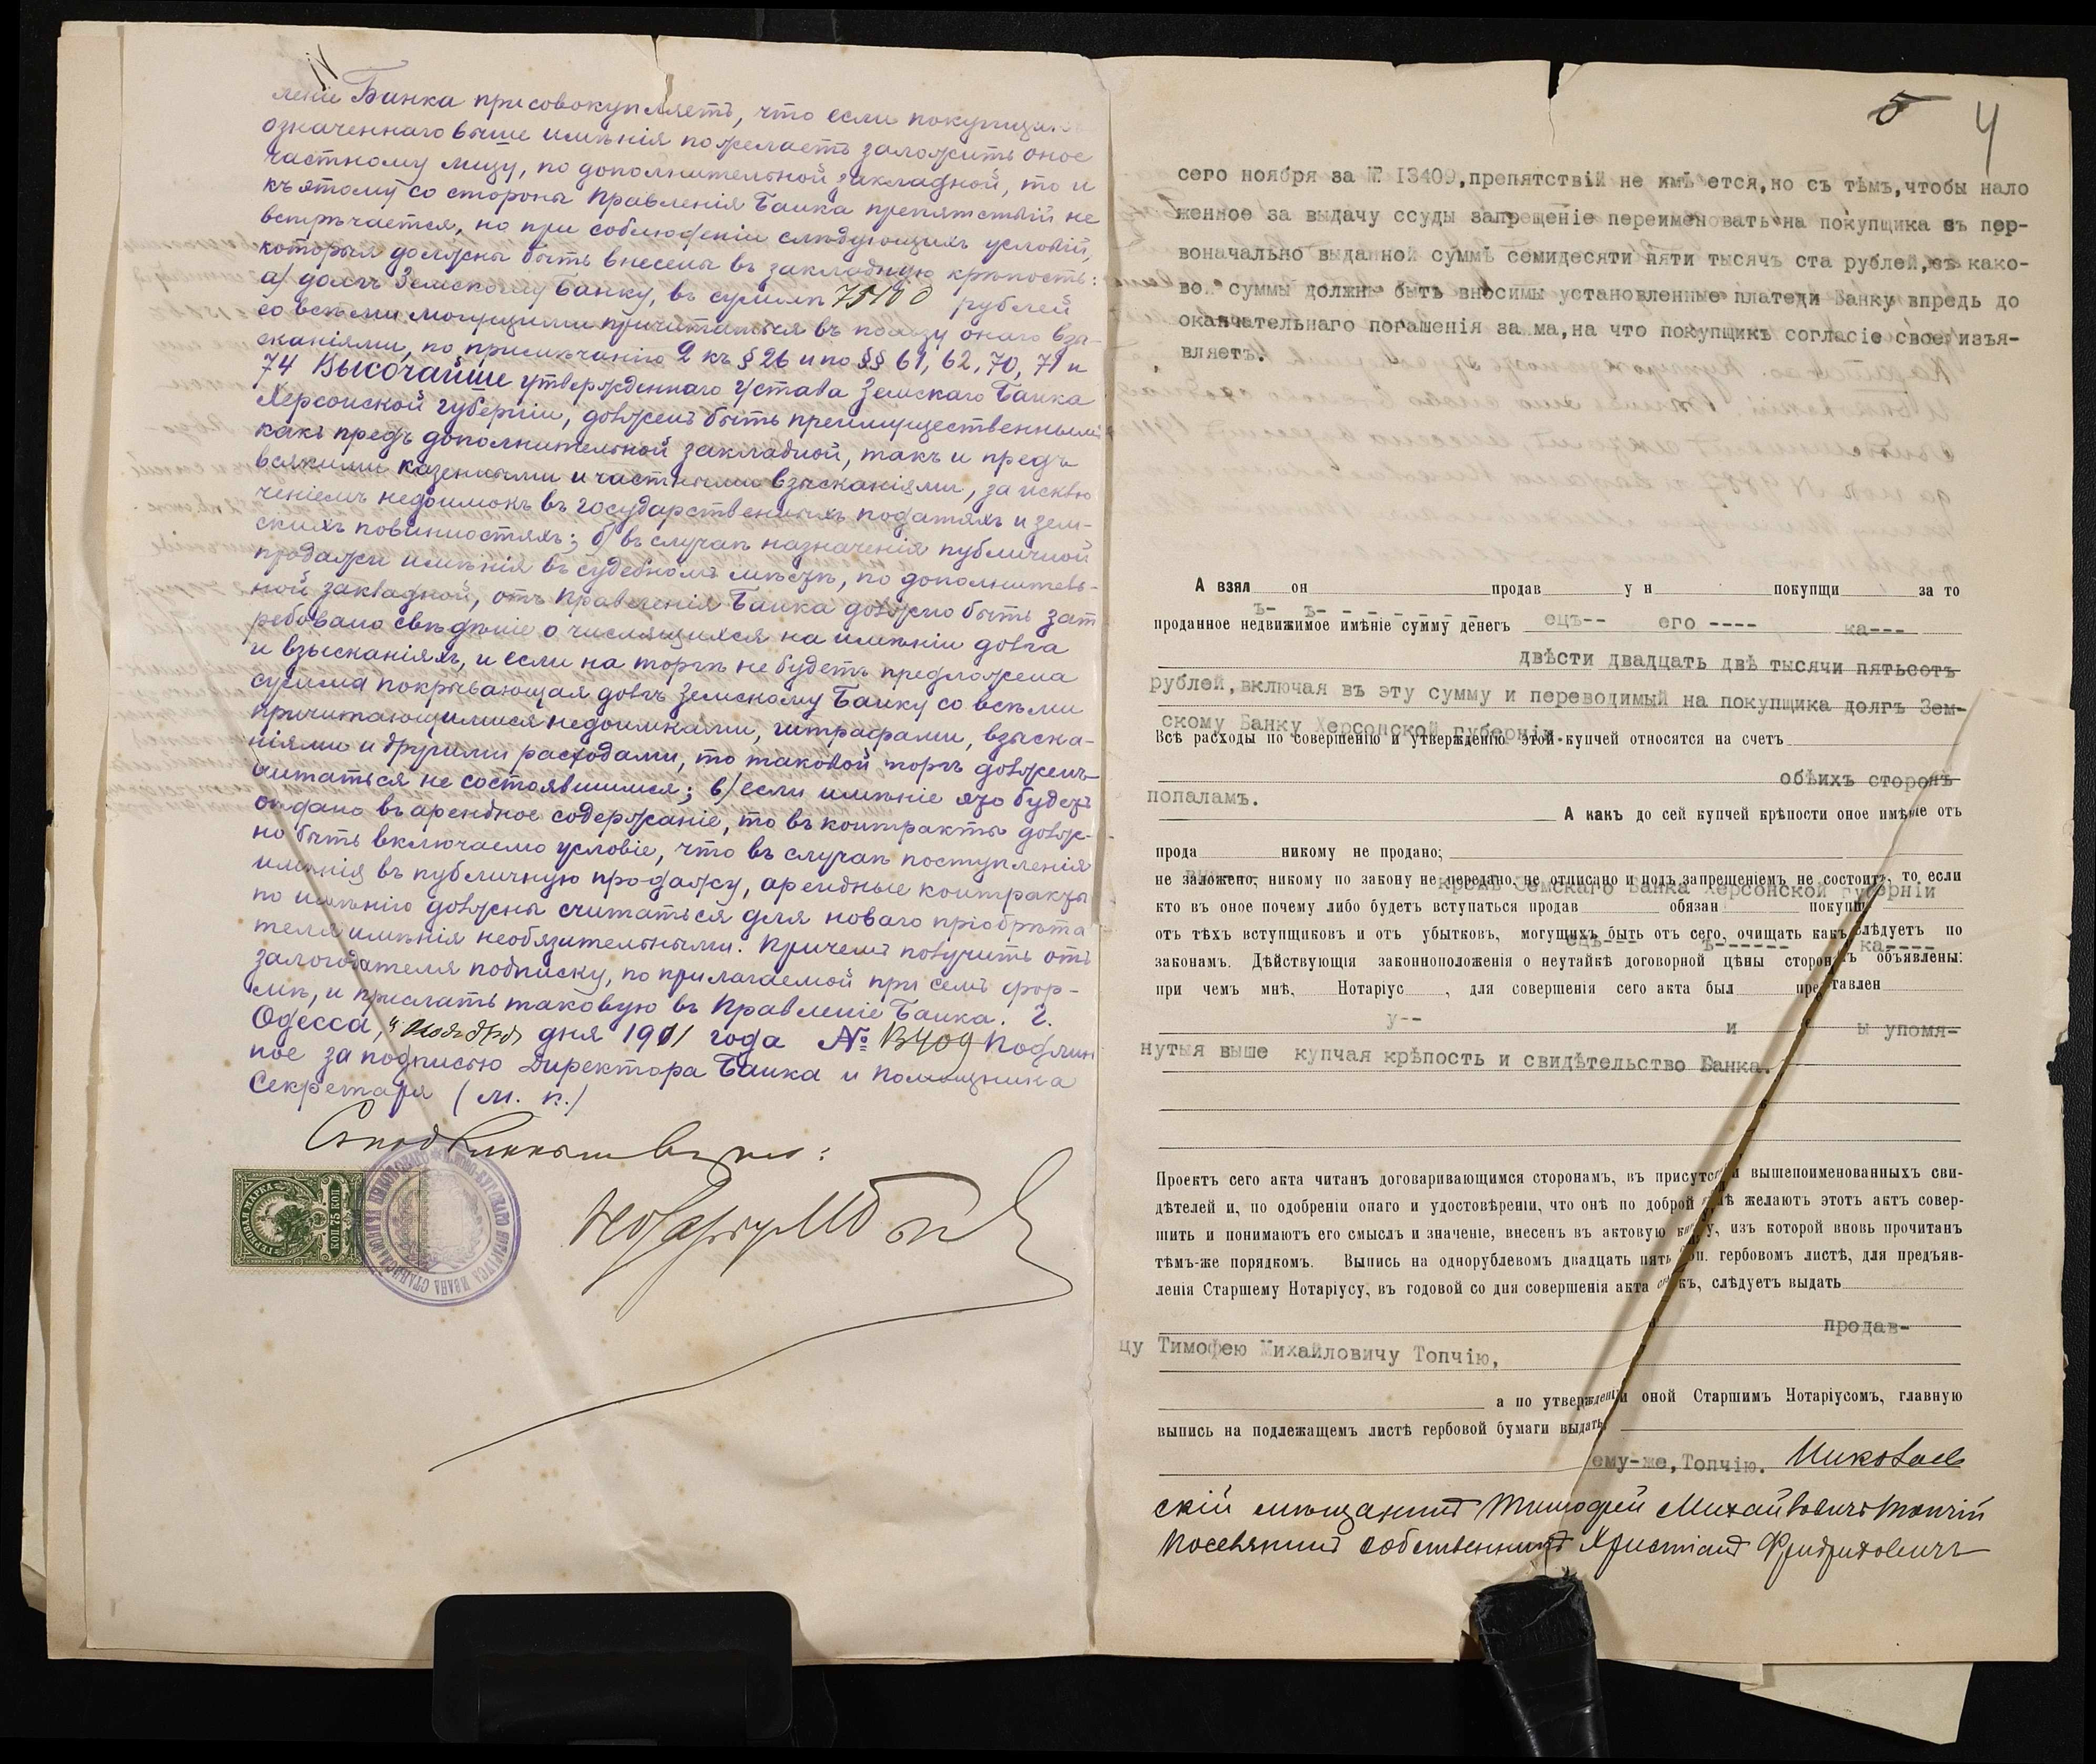 леніе Банка присовокупляетъ, что если покупщикъ
означеннаго выше имѣнія пожелаетъ заложить оное
частному лицу, по дополнительной закладной, то и
къ этому со стороны Правленія Банка препятствій не
встрѣчается, но при соблюденіи слѣдующихъ условій,
которыя должны быть внесены въ закладную крѣпость:
а) долгъ Земскому Банку, въ суммѣ 75100 рублей
со всѣми могущими причитаться въ пользу онаго взы-
сканіями, по примѣчанію 2 къ § 26 и по §§ 61, 62, 70, 71 и
74 Высочайше утвержденнаго Устава Земскаго Банка
Херсонской губерніи, долженъ быть преимущественнымъ
какъ предъ дополнительной закладной, такъ и предъ
всякими казенными и частными взысканіями, за исклю
ченіемъ недоимокъ въ государственныхъ податяхъ и зем-
скихъ повинностяхъ; б) въ случаѣ назначенія публичной
продажи имѣнія въ судебномъ мѣстѣ, по дополнитель-
ной закладной, отъ Правленія Банка должно быть зат
ребовано свѣдѣніе о числящихся на имѣніи долга
и взысканіяхъ, и если на торгѣ не будетъ предложена
сумма покрывающая долгъ Земскому Банку со всѣми
причитающимися недоимками, штрафами, взыска-
ніями и другими расходами, то таковой торгъ долженъ
считаться не состоявшимся; в) если имѣніе это будетъ
отдано въ арендное содержаніе, то въ контракты долж-
но быть включаемо условіе, что въ случаѣ поступленія
имѣнія въ публичную продажу, арендные контракты
по имѣнію должны считаться для новаго пріобрѣта
теля имѣнія необязательными. Причемъ получить отъ
залогодателя подписку, по прилагаемой при семъ фор-
мѣ, и прислать таковую въ Правленіе Банка. Г.
Одесса, " ноября дня 1911 года № 13409 Подлин
ное за подписью Директора Банка и Помощника
Секретаря (м. п.)
ГЕРБОВАЯ МАРКА
75 КОП
5 4
сего ноября за № I3409,препятствій не имѣ ется,но съ тѣмъ,чтобы нало
женное за выдачу ссуды запрещеніе переименовать на покупщика въ пер-
воначально выданной суммѣ семидесяти пяти тысячъ ста рублей,съ како-
вой суммы должны быть вносимы установленные платежи Банку впредь до
окончательнаго погашенія займа,на что покупщикъ согласіе свое изъя-
вляетъ.
А взял он продав у н покупщи за то
ъ- ъ-
проданное недвижимое имѣніе сумму денегъ ецъ-- его ---- ка---
двѣсти двадцать двѣ тысячи пятьсотъ
рублей,включая въ эту сумму и переводимый на покупщика долгъ Зем-
скому Банку Херсонской губерніи.
Всѣ расходы по совершенію и утвержденію этой купчей относятся на счетъ
обѣихъ сторонъ
пополамъ.
А какъ до сей купчей крѣпости оное имѣніе отъ
прода никому не продано;
не заложено, никому по закону не передано, не отписано и подъ запрещеніемъ не состоитъ, то если
кромѣ Земскаго Банка Херсонской губерніи
кто въ оное почему либо будетъ вступаться продав обязан покупщ
отъ тѣхъ вступщиковъ и отъ убытковъ, могущихъ быть отъ сего, очищать какъ слѣдуетъ по
ецъ--- ъ------ ка----
законамъ. Дѣйствующія законноположенія о неутайкѣ договорной цѣны сторонамъ объявлены:
при чемъ мнѣ, Нотаріус , для совершенія сего акта был представлен
у-- и ы упомя-
нутыя выше купчая крѣпость и свидѣтельство Банка.
Проектъ сего акта читанъ договаривающимся сторонамъ, въ присутствіи вышепоименованныхъ сви-
дѣтелей и, по одобреніи онаго и удостовѣреніи, что онѣ по доброй волѣ желаютъ этотъ актъ совер-
шить и понимаютъ его смыслъ и значеніе, внесенъ въ актовую книгу, изъ которой вновь прочитанъ
тѣмъ-же порядкомъ. Выпись на однорублевомъ двадцать пять коп. гербовомъ листѣ, для предъяв-
ленія Старшему Нотаріусу, въ годовой со дня совершенія акта срокъ, слѣдуетъ выдать
продав-
цу Тимофею Михайловичу Топчію,
а по утвержденіи оной Старшимъ Нотаріусомъ, главную
выпись на подлежащемъ листѣ гербовой бумаги выдать
ему-же,Топчію. Николаев
скій мѣщанинъ Тимофей Михайловичъ Топчій
Поселянинъ собственникъ Христіанъ Фридриховичъ